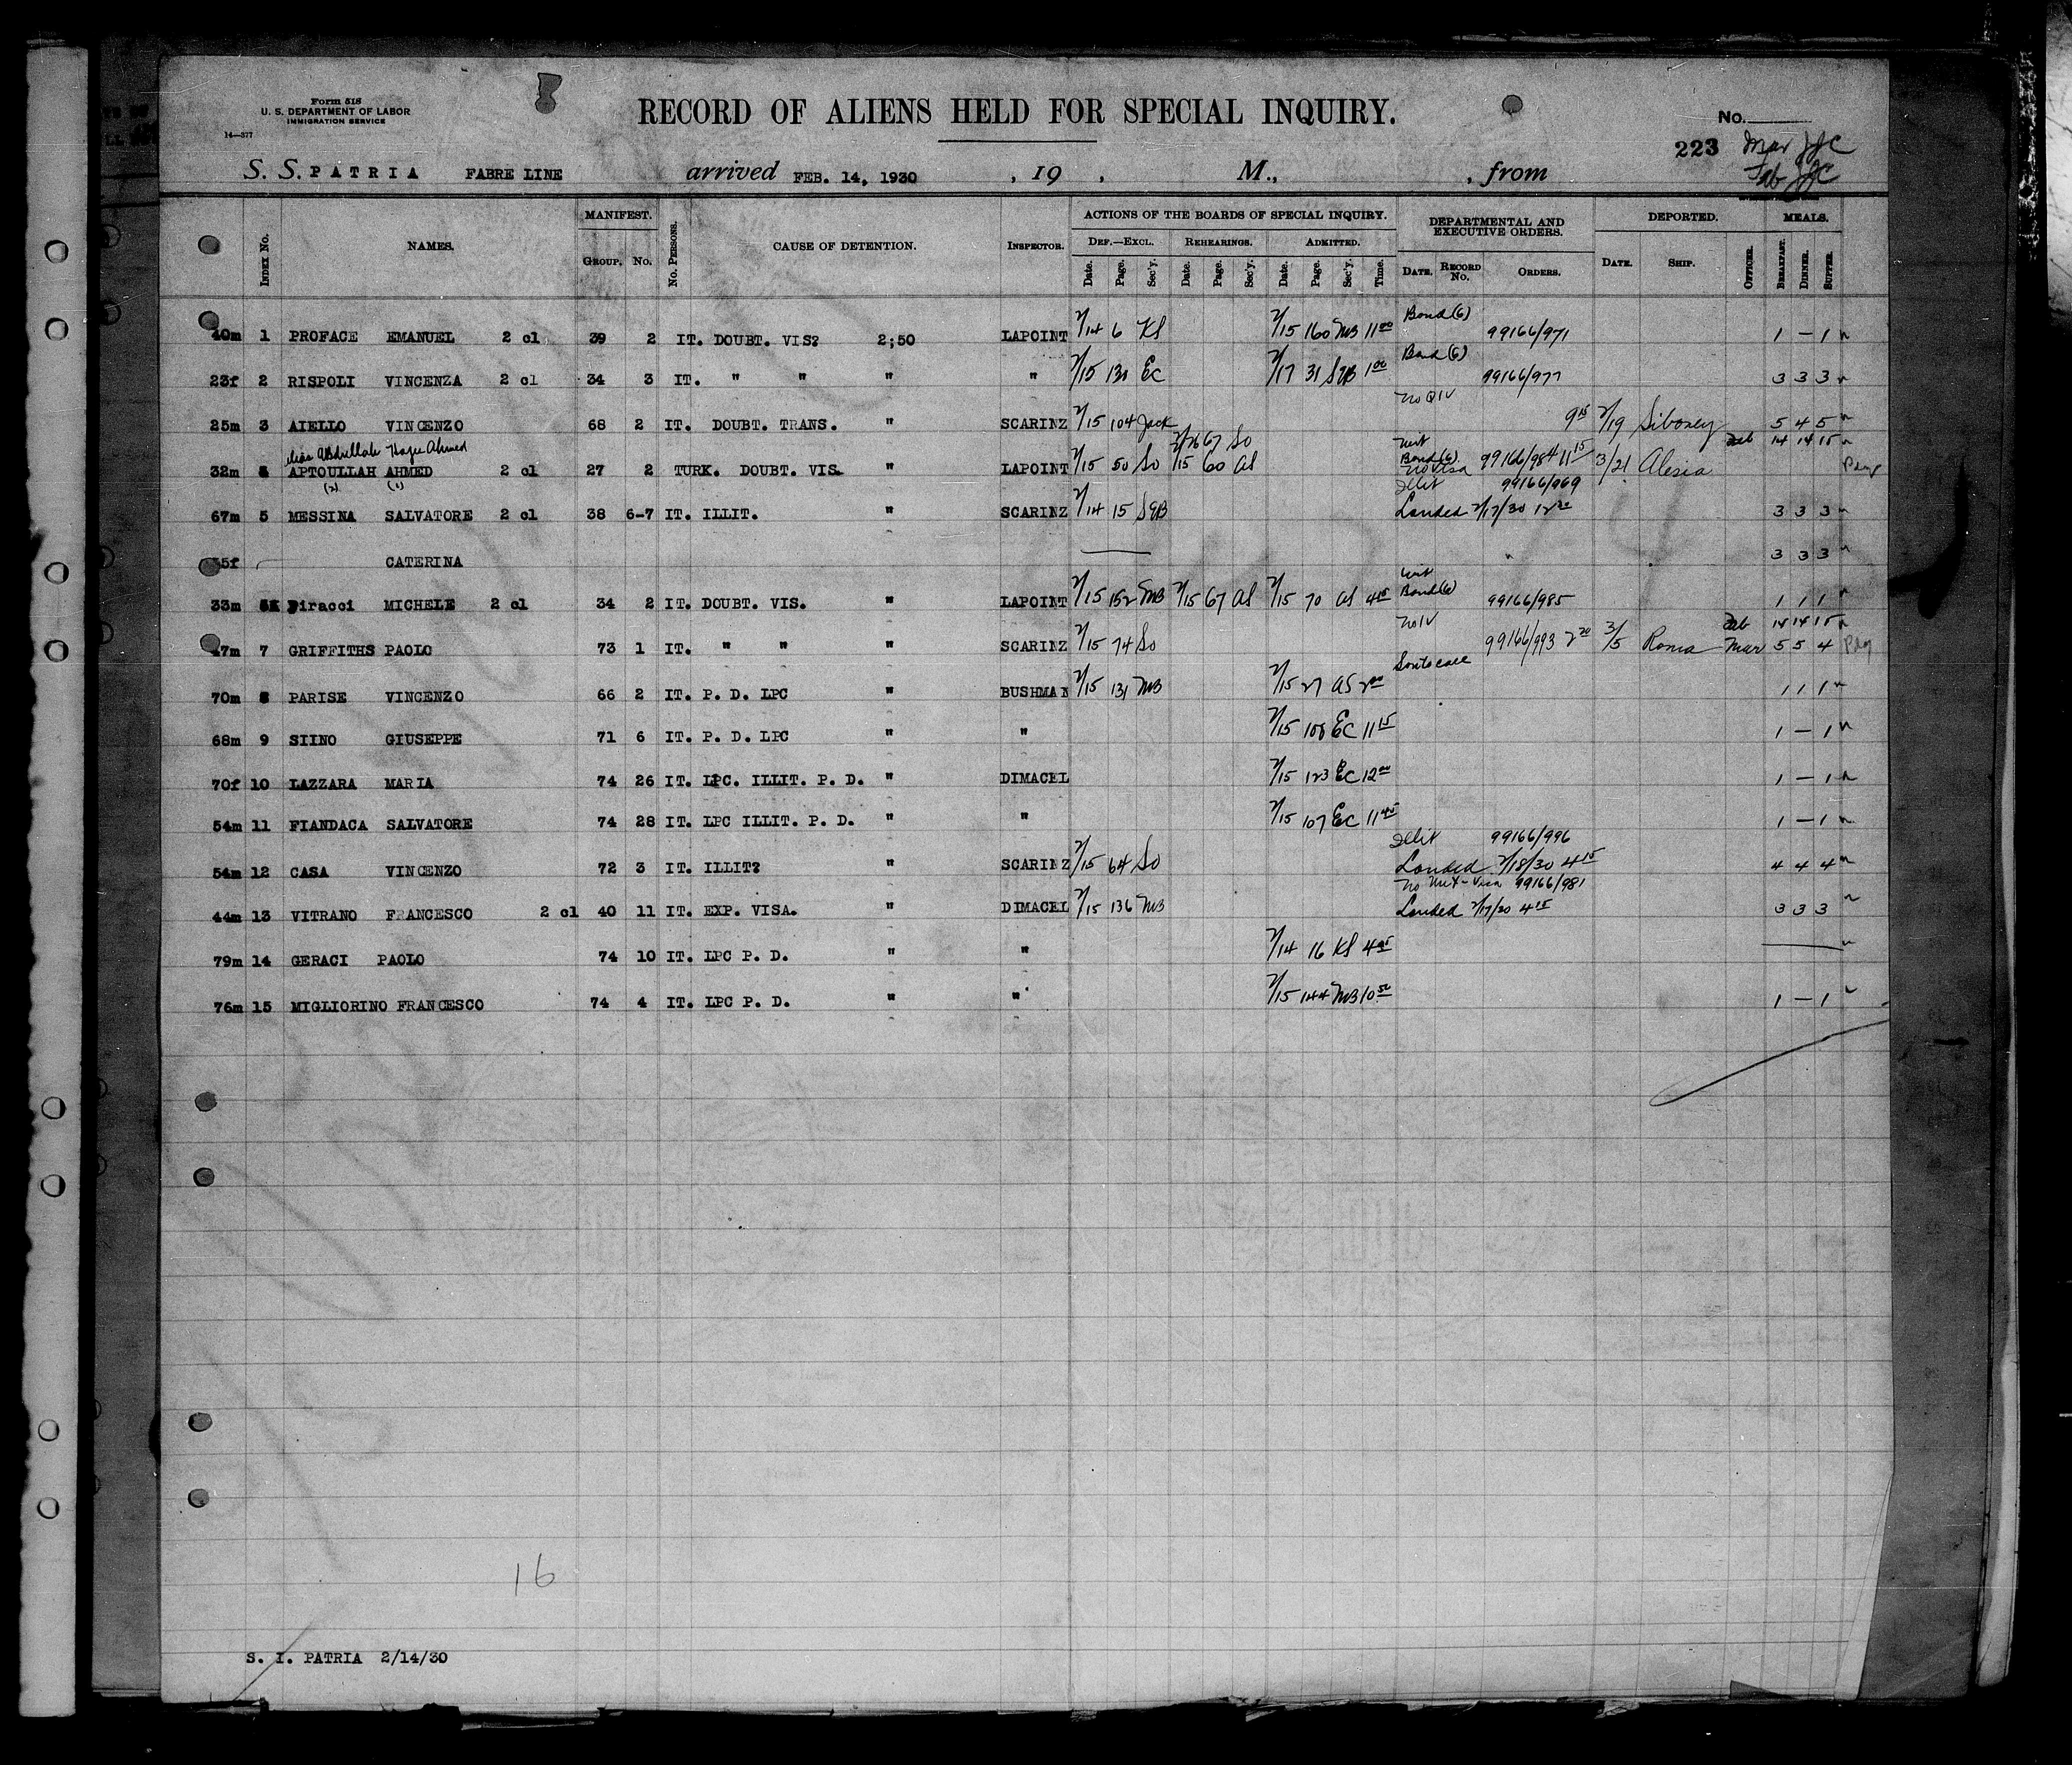 Form 518
U. S. DEPARTMENT OF LABOR
IMMIGRATION SERVICE
14—377
RECORD OF ALIENS HELD FOR SPECIAL INQUIRY.
No.
223
S. S. PATRIA FABRE LINE arrived FEB. 14, 1930 , 19 , M., , from
INDEX No. NAMES. MANIFEST. GROUP. No. No. PERSONS. CAUSE OF DETENTION. INSPECTOR. ACTIONS OF THE BOARDS OF SPECIAL INQUIRY. DEPARTMENTAL AND EXECUTIVE ORDERS. DEPORTED. MEALS.
DEF.—EXCL. REHEARINGS. ADMITTED.
Date. Page. Sec'y. Date. Page. Sec'y. Date. Page. Sec'y. Time. DATE. RECORD No. ORDERS. DATE. SHIP. OFFICER. BREAKFAST. DINNER. SUPPER.
Bond (6)
40m 1 PROFACE EMANUEL 2 cl 39 2 IT. DOUBT. VIS? 2;50 LAPOINT 2/14 6 KS 2/15 160 MB 11 00 99166/971 1 — 1
Bond (6)
23f 2 RISPOLI VINCENZA 2 cl 34 3 IT. " " " " 2/15 EC 2/17 31 SEB 1 00 99166/977 3 3 3
No QIV
25m 3 AIELLO VINCENZO 68 2 IT. DOUBT. TRANS. " SCARINZ 2/15 104 Jack 9 15 2/19 Siboney 5 4 5
alias Abdullah Ahmed 67 So Feb 14 14 15
32m APTOULLAH AHMED 2 cl 27 2 TURK. DOUBT. VIS. " LAPOINT 2/15 50 So 2/15 60 AS Bond (6) No Visa 99166/984 11 15 3/21 Alesia
(2) (1)
Illit 99166/969
67m 5 MESSINA SALVATORE 2 cl 38 6-7 IT. ILLIT. " SCARINZ 2/14 15 SEB Landed 2/17/30 3 3 3
CATERINA " 3 3 3
33m Piracci MICHELE 2 cl 34 2 IT. DOUBT. VIS. " LAPOINT 2/15 152 MB 2/15 67 AS 2/15 70 AS 4 15 Bond (6) 99166/985 1 1 1
No IV Feb 14 14 15
47m 7 GRIFFITHS PAOLO 73 1 IT. " " " SCARINZ 2/15 74 So 99166/993 3/5 Roma Mar 5 5 4
70m 8 PARISE VINCENZO 66 2 IT. P. D. LPC " BUSHMAN 2/15 131 MB 2/15 27 AS 2 00 1 1 1
68m 9 SIINO GIUSEPPE 71 6 IT. P. D. LPC " " 2/15 108 EC 11 15 1 — 1
70f 10 LAZZARA MARIA 74 26 IT. LPC. ILLIT. P. D. " DIMACEL 2/15 123 EC 12 00 1 — 1
54m 11 FIANDACA SALVATORE 74 28 IT. LPC ILLIT. P. D. " " 2/15 107 EC 11 45 1 — 1
Illit 99166/996
54m 12 CASA VINCENZO 72 3 IT. ILLIT? " SCARINZ 2/15 64 So Landed 2/18/30 4 15 4 4 4
99166/981
44m 13 VITRANO FRANCESCO 2 cl 40 11 IT. EXP. VISA. " DIMACEL 2/15 136 MB Landed 2/17/30 4 15 3 3 3
79m 14 GERACI PAOLO 74 10 IT. LPC P. D. " " 2/14 16 KS
76m 15 MIGLIORINO FRANCESCO 74 4 IT. LPC P. D. " " 2/15 144 MB 10 50 1 — 1
16
S. I. PATRIA 2/14/30